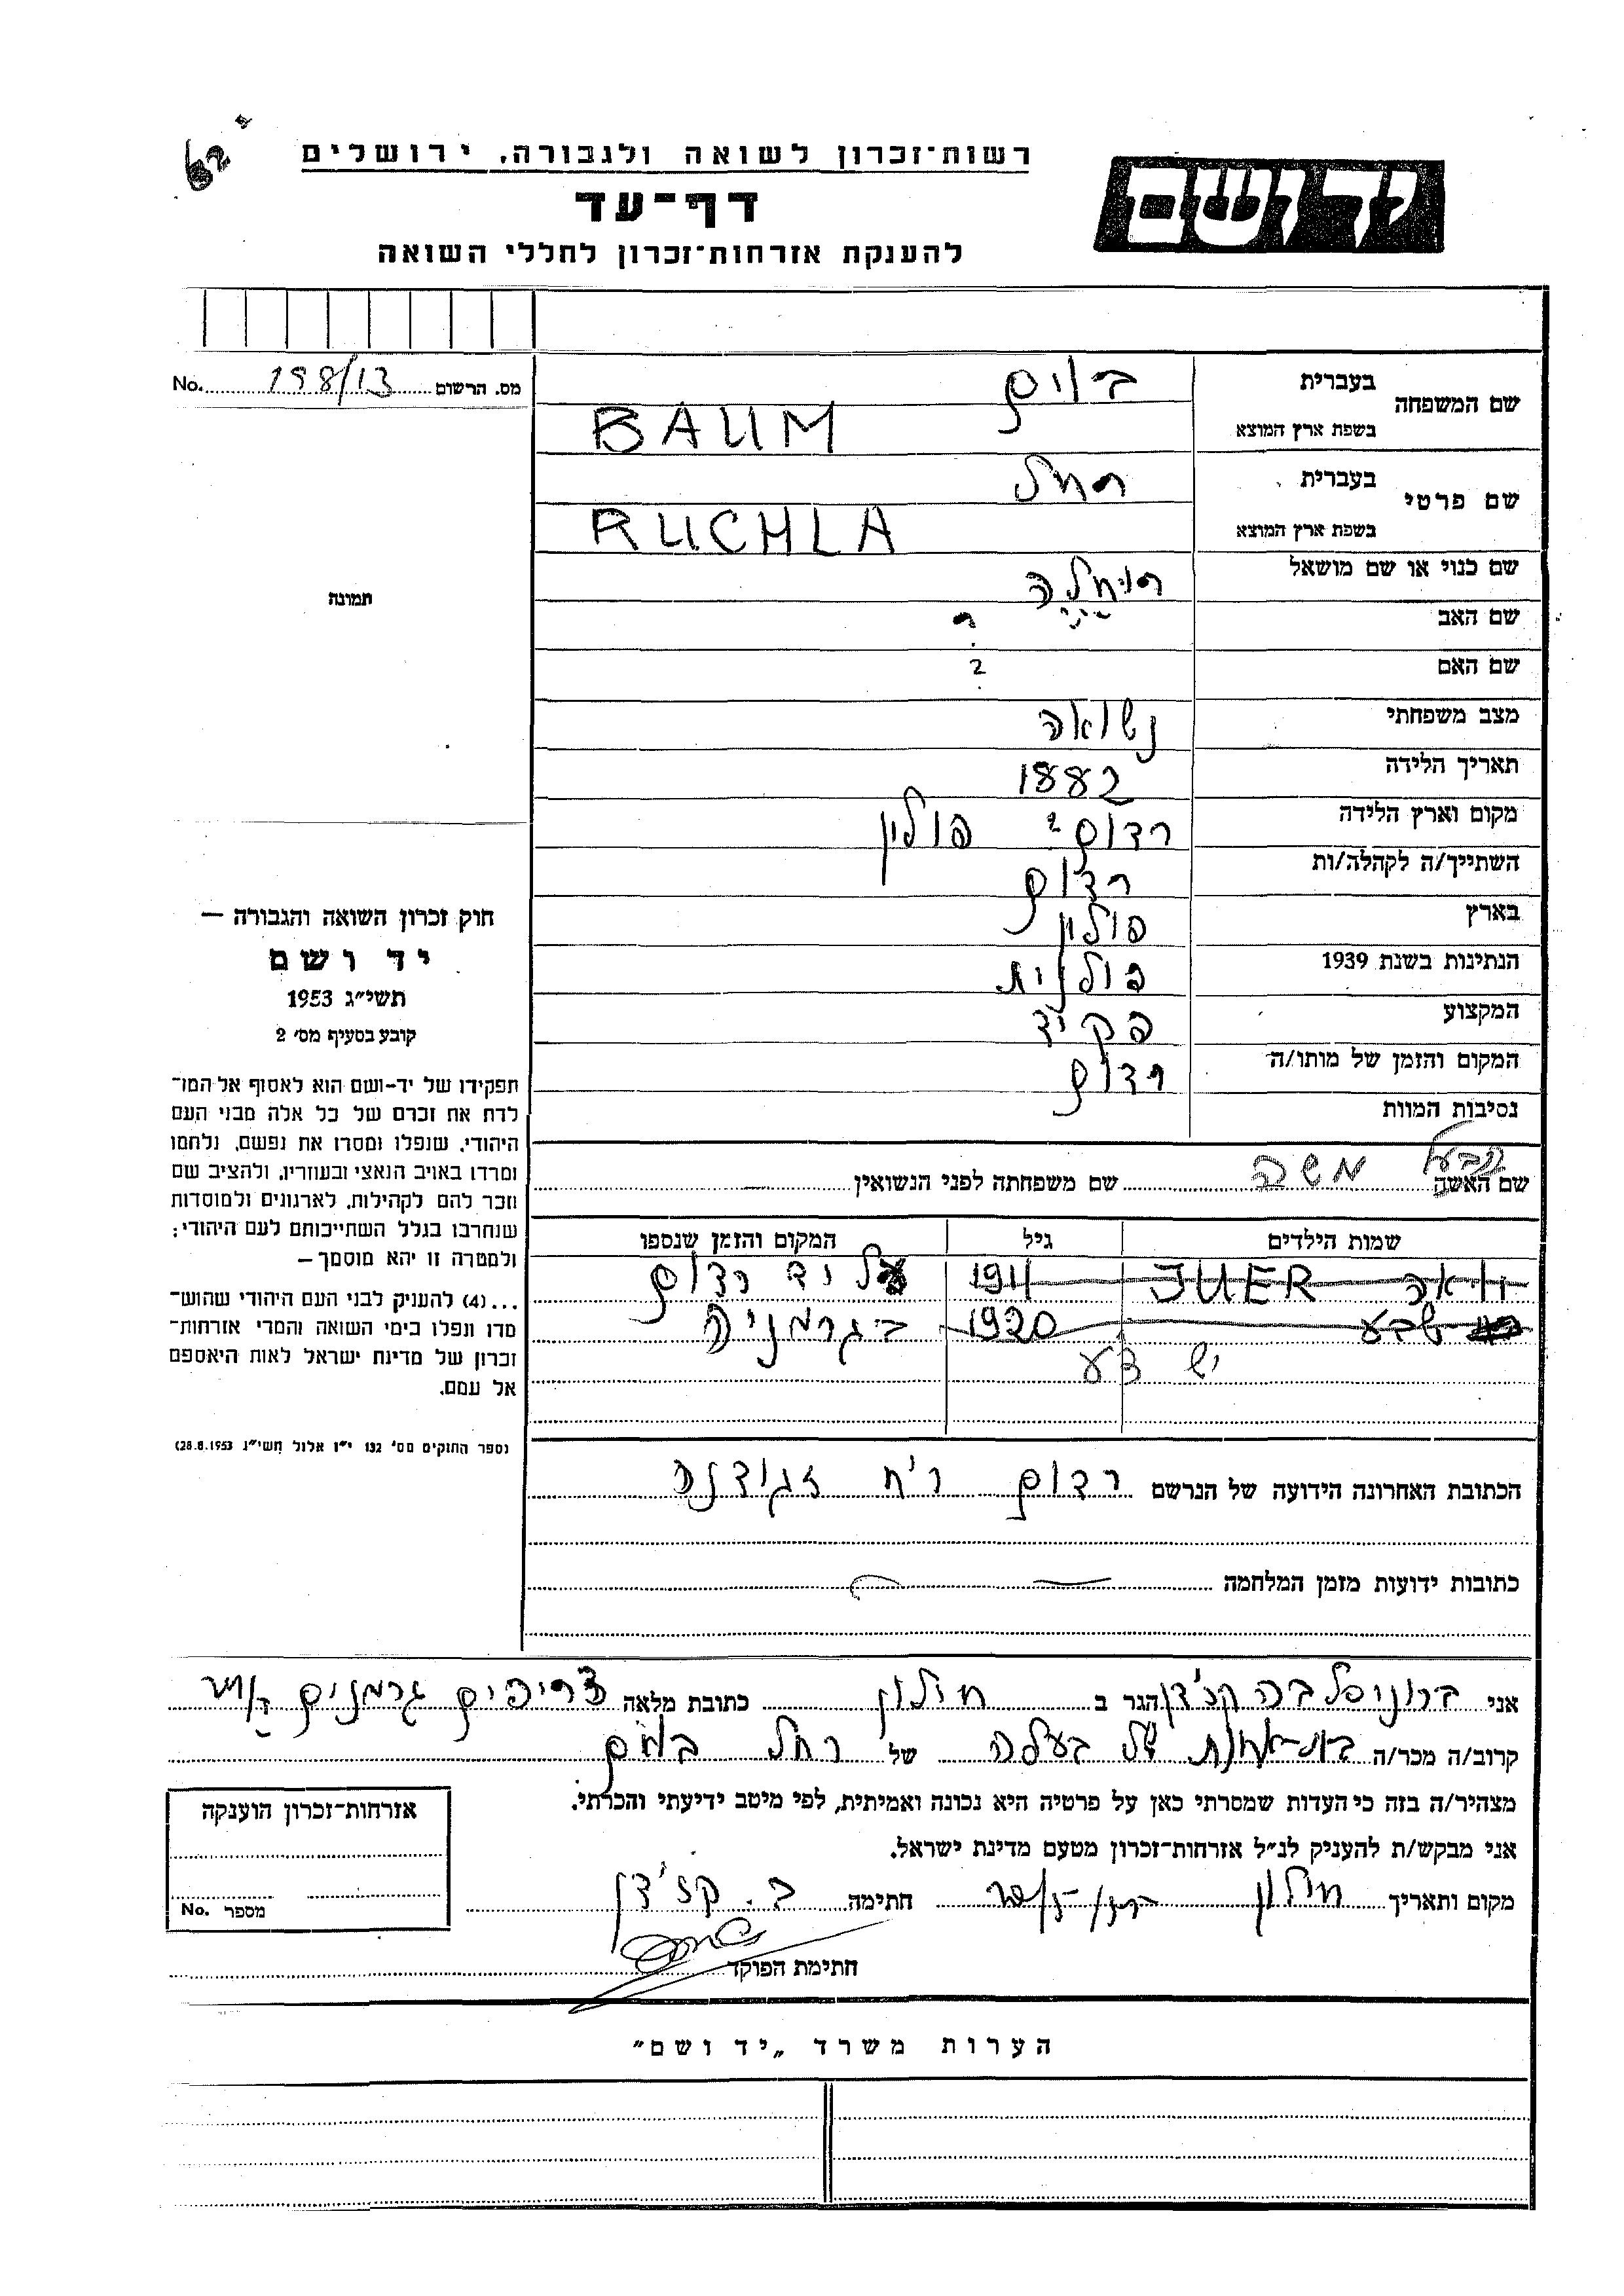 רשות־זכרון לשואה ולגבורה, ירושלים
דף־עד
להענקת אזרחות־זכרון לחללי השואה
יד ושם
מס. הרשום 198/13 No.
שם המשפחה בעברית באום
בשפת ארץ המוצא BAUM
שם פרטי בעברית רחל
בשפת ארץ המוצא RUCHLA
שם כנוי או שם מושאל רוחלה
שם האב ?
שם האם ?
מצב משפחתי נשואה
תאריך הלידה 1882
מקום וארץ הלידה רדום ? פולין
השתייך/ה לקהלה/ות רדום
בארץ פולין
הנתינות בשנת 1939 פולנית
המקצוע פקיד
המקום והזמן של מותו/ה רדום
נסיבות המוות
שם האשה הבעל משה שם משפחתה לפני הנשואין
שמות הילדים גיל המקום והזמן שנספו
JUER 1911 על יד רדום
שבע 1920 בגרמניה
יש
הכתובת האחרונה הידועה של הנרשם רדום רח
כתובות ידועות מזמן המלחמה —
תמונה
חוק זכרון השואה והגבורה —
יד ושם
תשי״ג 1953
קובע בסעיף מס׳ 2
תפקידו של יד־ושם הוא לאסוף אל המו־
לדת את זכרם של כל אלה מבני העם
היהודי, שנפלו ומסרו את נפשם, נלחמו
ומרדו באויב הנאצי ובעוזריו, ולהציב שם
וזכר להם לקהילות, לארגונים ולמוסדות
שנחרבו בגלל השתייכותם לעם היהודי;
ולמטרה זו יהא מוסמך —
...(4) להעניק לבני העם היהודי שהוש־
מדו ונפלו בימי השואה והמרי אזרחות־
זכרון של מדינת ישראל לאות היאספם
אל עמם.
(ספר החוקים מס׳ 132 י״ז אלול תשי״ג 28.8.1953)
אני הגר ב חולון כתובת מלאה צריפים
קרוב/ה מכר/ה של בעלה של רחל באום
מצהיר/ה בזה כי העדות שמסרתי כאן על פרטיה היא נכונה ואמיתית, לפי מיטב ידיעתי והכרתי.
אני מבקש/ת להעניק לנ״ל אזרחות־זכרון מטעם מדינת ישראל.
מקום ותאריך חולון חתימה ב. קז׳דן
חתימת הפוקד
אזרחות־זכרון הוענקה
מספר No.
הערות משרד „יד ושם״